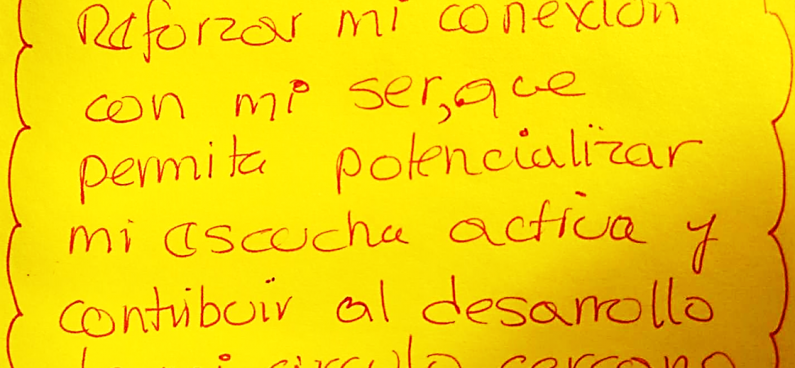 Reforzar mi conexión
con mi ser, que
permita potencializar
mi escucha activa y
contribuir al desarrollo
de mi circulo cercano